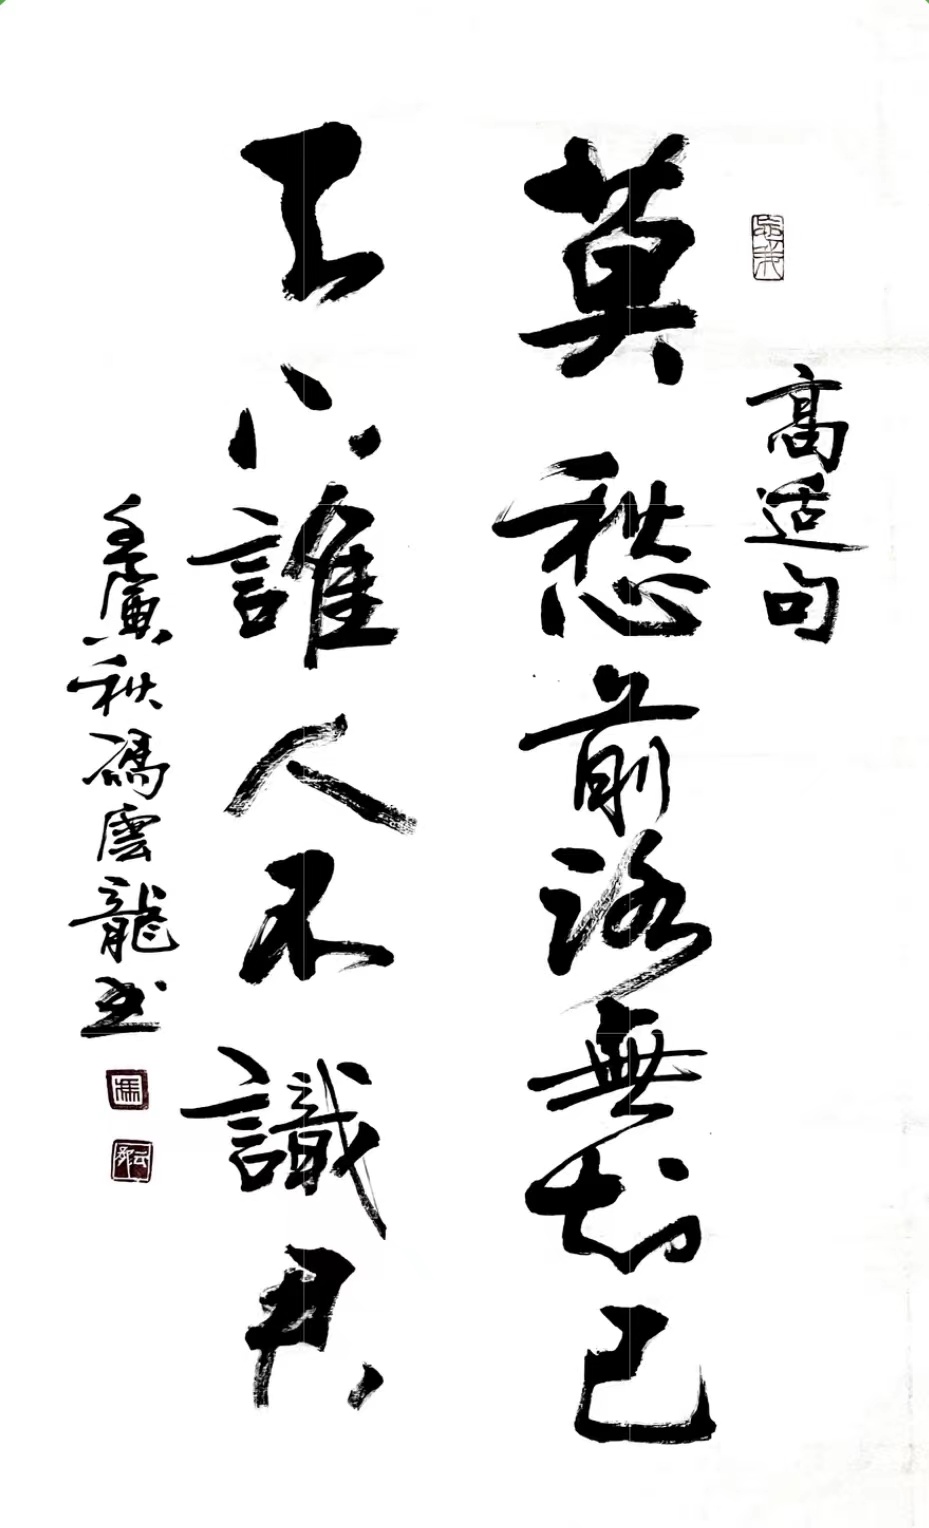 高适句
莫愁前路無知己
天下誰人不識君
壬寅秋馮雲龍书